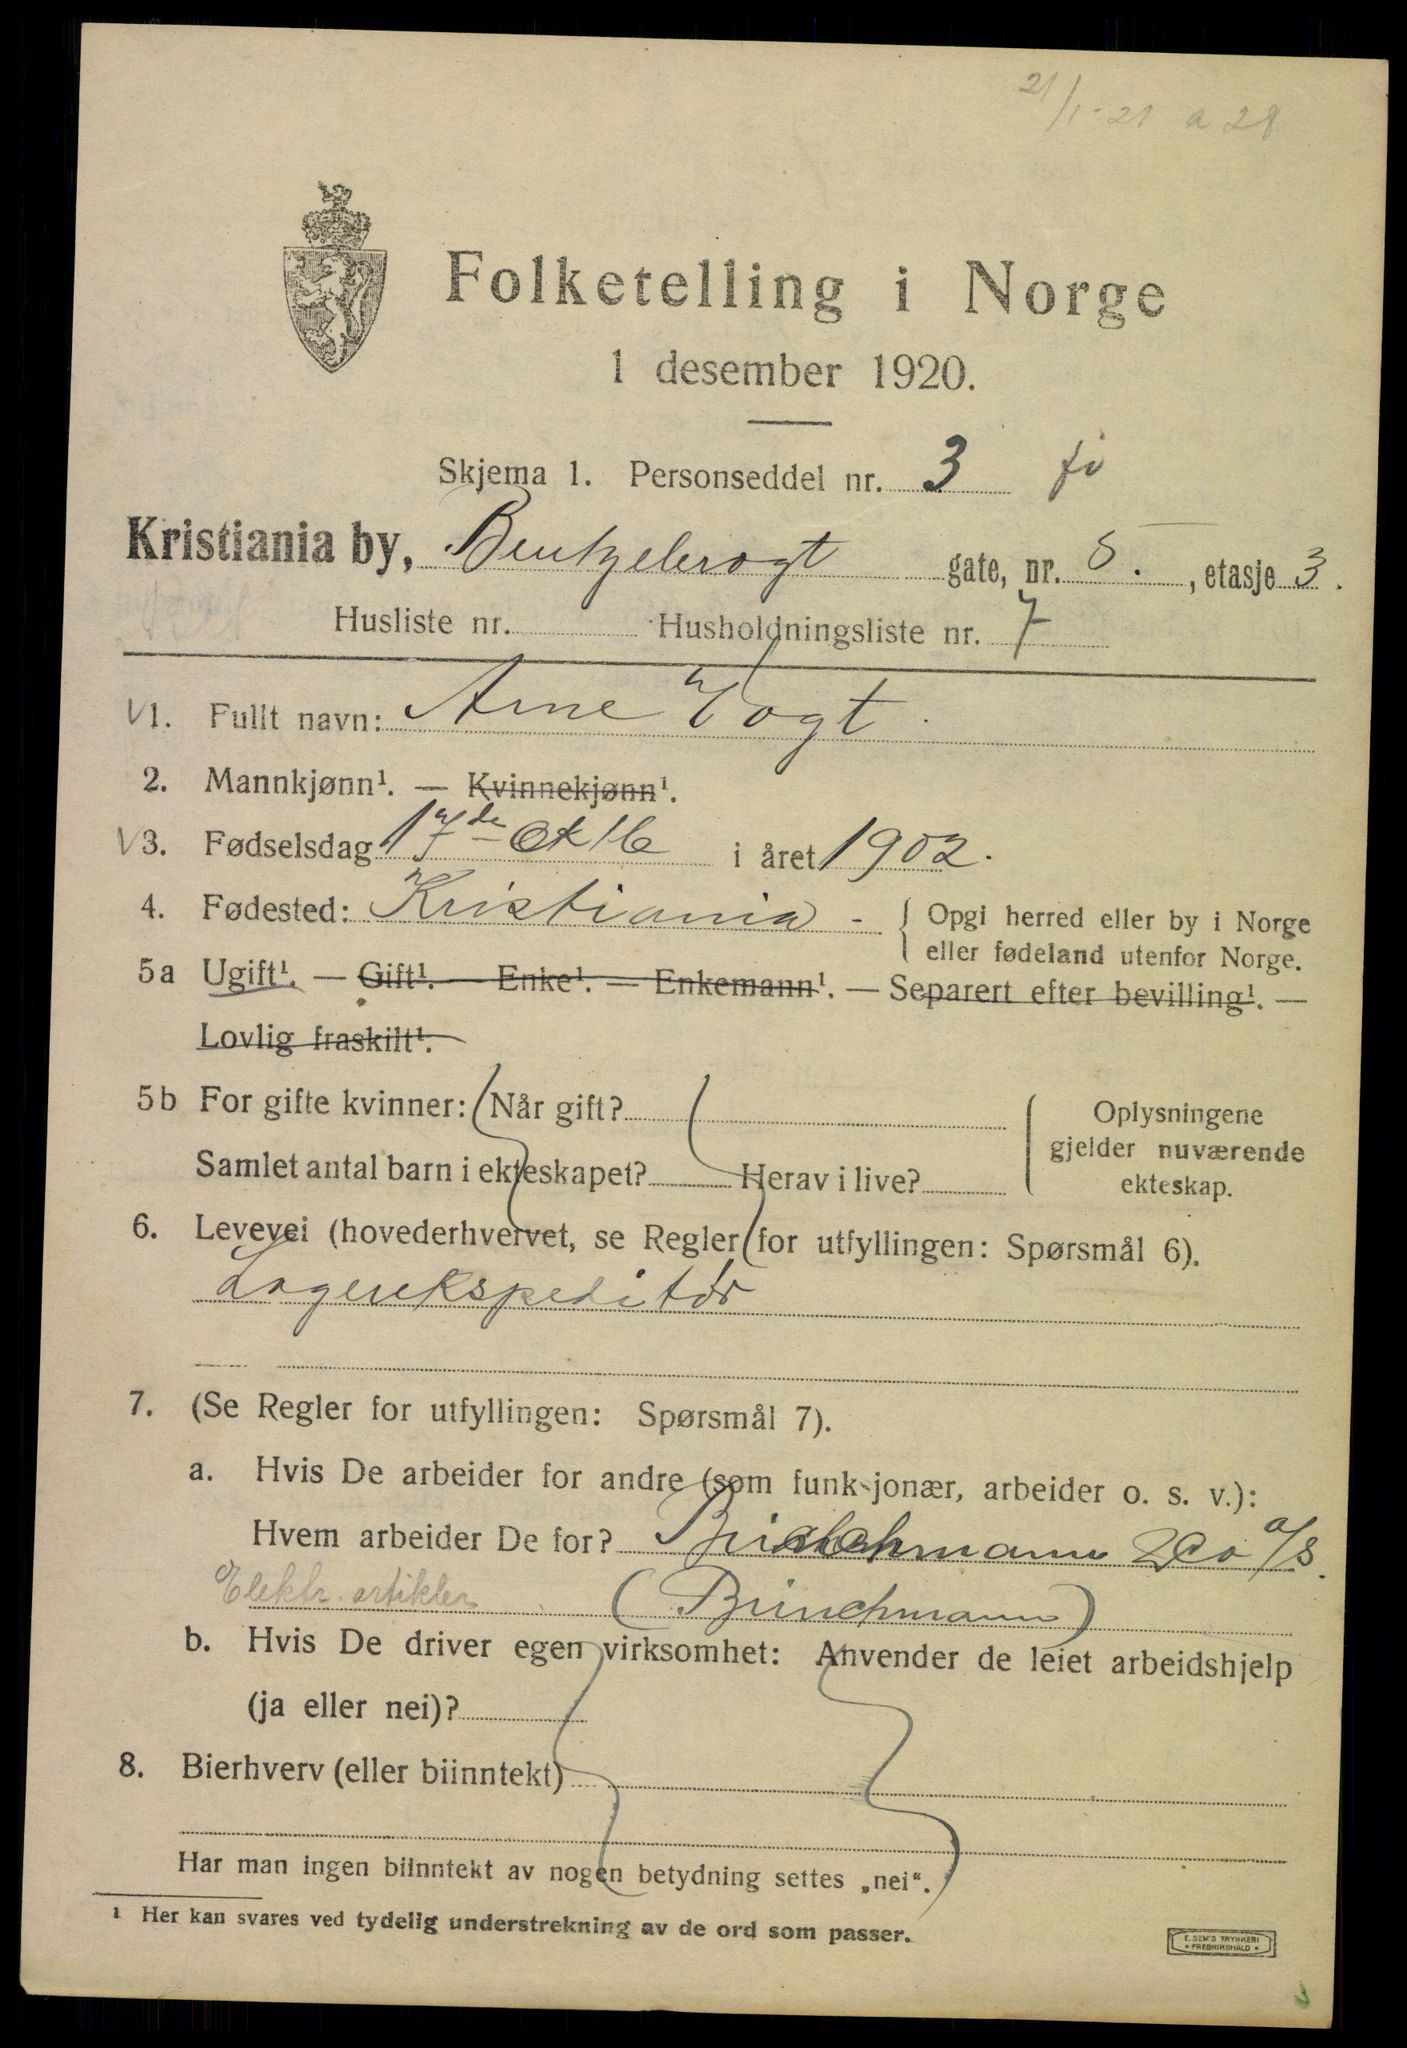 21/1-21 a 28
Folketelling i Norge
1 desember 1920.
Skjema 1. Personseddel nr. 3
Kristiania by, Bentzelsvogt gate, nr. 5. , etasje 3.
Husliste nr. Husholdningsliste nr. 7
V1. Fullt navn: Arne Vogt.
2. Mannkjønn¹. — Kvinnekjønn¹.
V3. Fødselsdag 17de Oktb i året 1902.
4. Fødested: Kristiania - { Opgi herred eller by i Norge
eller fødeland utenfor Norge.
5a Ugift¹. — Gift¹. — Enke¹. — Enkemann¹. — Separert efter bevilling¹. —
Lovlig fraskilt¹.
5b For gifte kvinner: Når gift? Oplysningene
gjelder nuværende
Samlet antal barn i ekteskapet? Herav i live? ekteskap.
6. Levevei (hovederhvervet, se Regler for utfyllingen: Spørsmål 6).
Lagerekspeditør
7. (Se Regler for utfyllingen: Spørsmål 7).
a. Hvis De arbeider for andre (som funksjonær, arbeider o. s. v.):
Hvem arbeider De for? & Co a/s.
Elektr. artikler (Brinchmann)
b. Hvis De driver egen virksomhet: Anvender de leiet arbeidshjelp
(ja eller nei)?
8. Bierhverv (eller biinntekt)
Har man ingen biinntekt av nogen betydning settes „nei“.
¹ Her kan svares ved tydelig understrekning av de ord som passer.
E. SEM'S TRYKKERI
* FREDRIKSHALD *